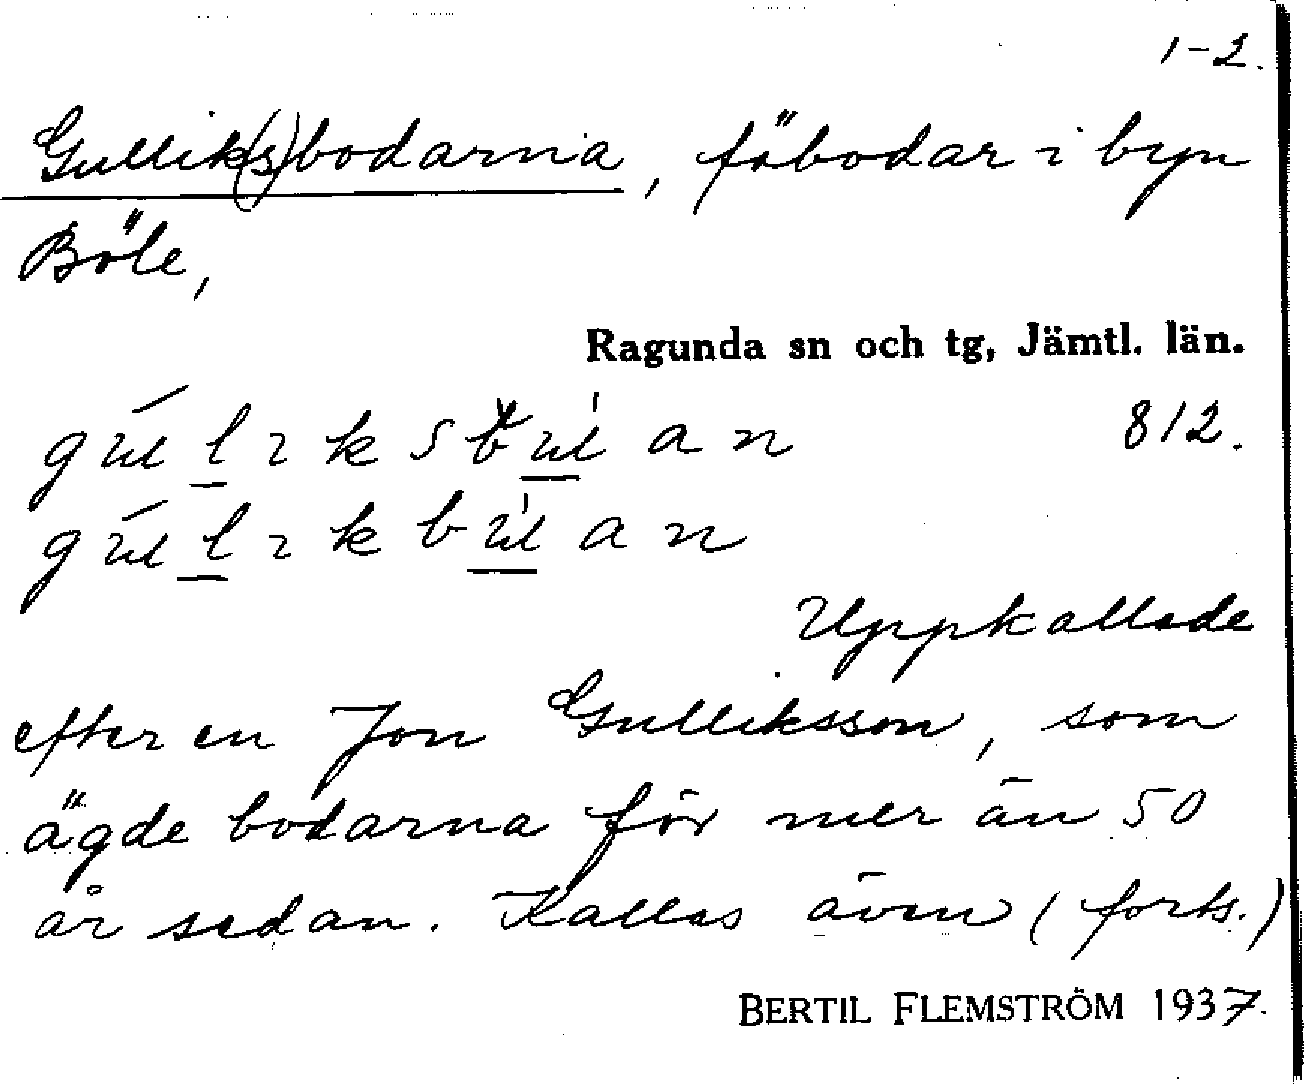 1-2.
Gullik(s)bodarna, fäbodar i byn
Böle,
Ragunda sn och tg, Jämtl. län.
812.
Uppkallade
efter en Jon Gulliksson, som
ägde bodarna för mer än 50
år sedan. Kallas även (forts.)
BERTIL FLEMSTRÖM 1937.